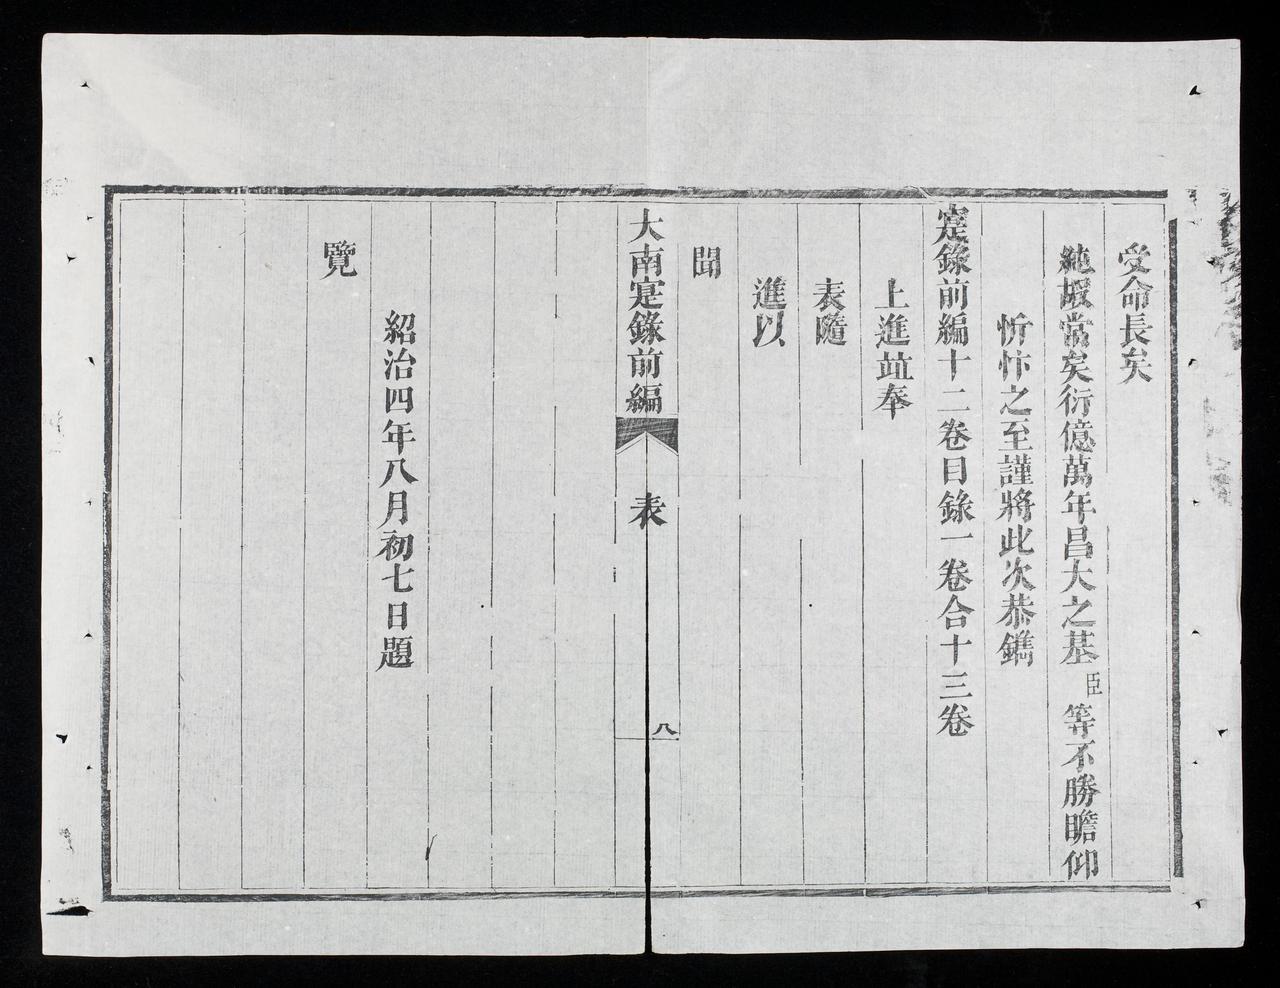 受命長矣
純嘏常矣衍億萬年昌大之基臣等不勝瞻仰
忻忭之至謹將此次恭鐫
寔錄前編十二卷目錄一卷合十三卷
上進竝奉
表隨
進以
聞
大南寔錄前編 表 八
紹治四年八月初七日題
覽